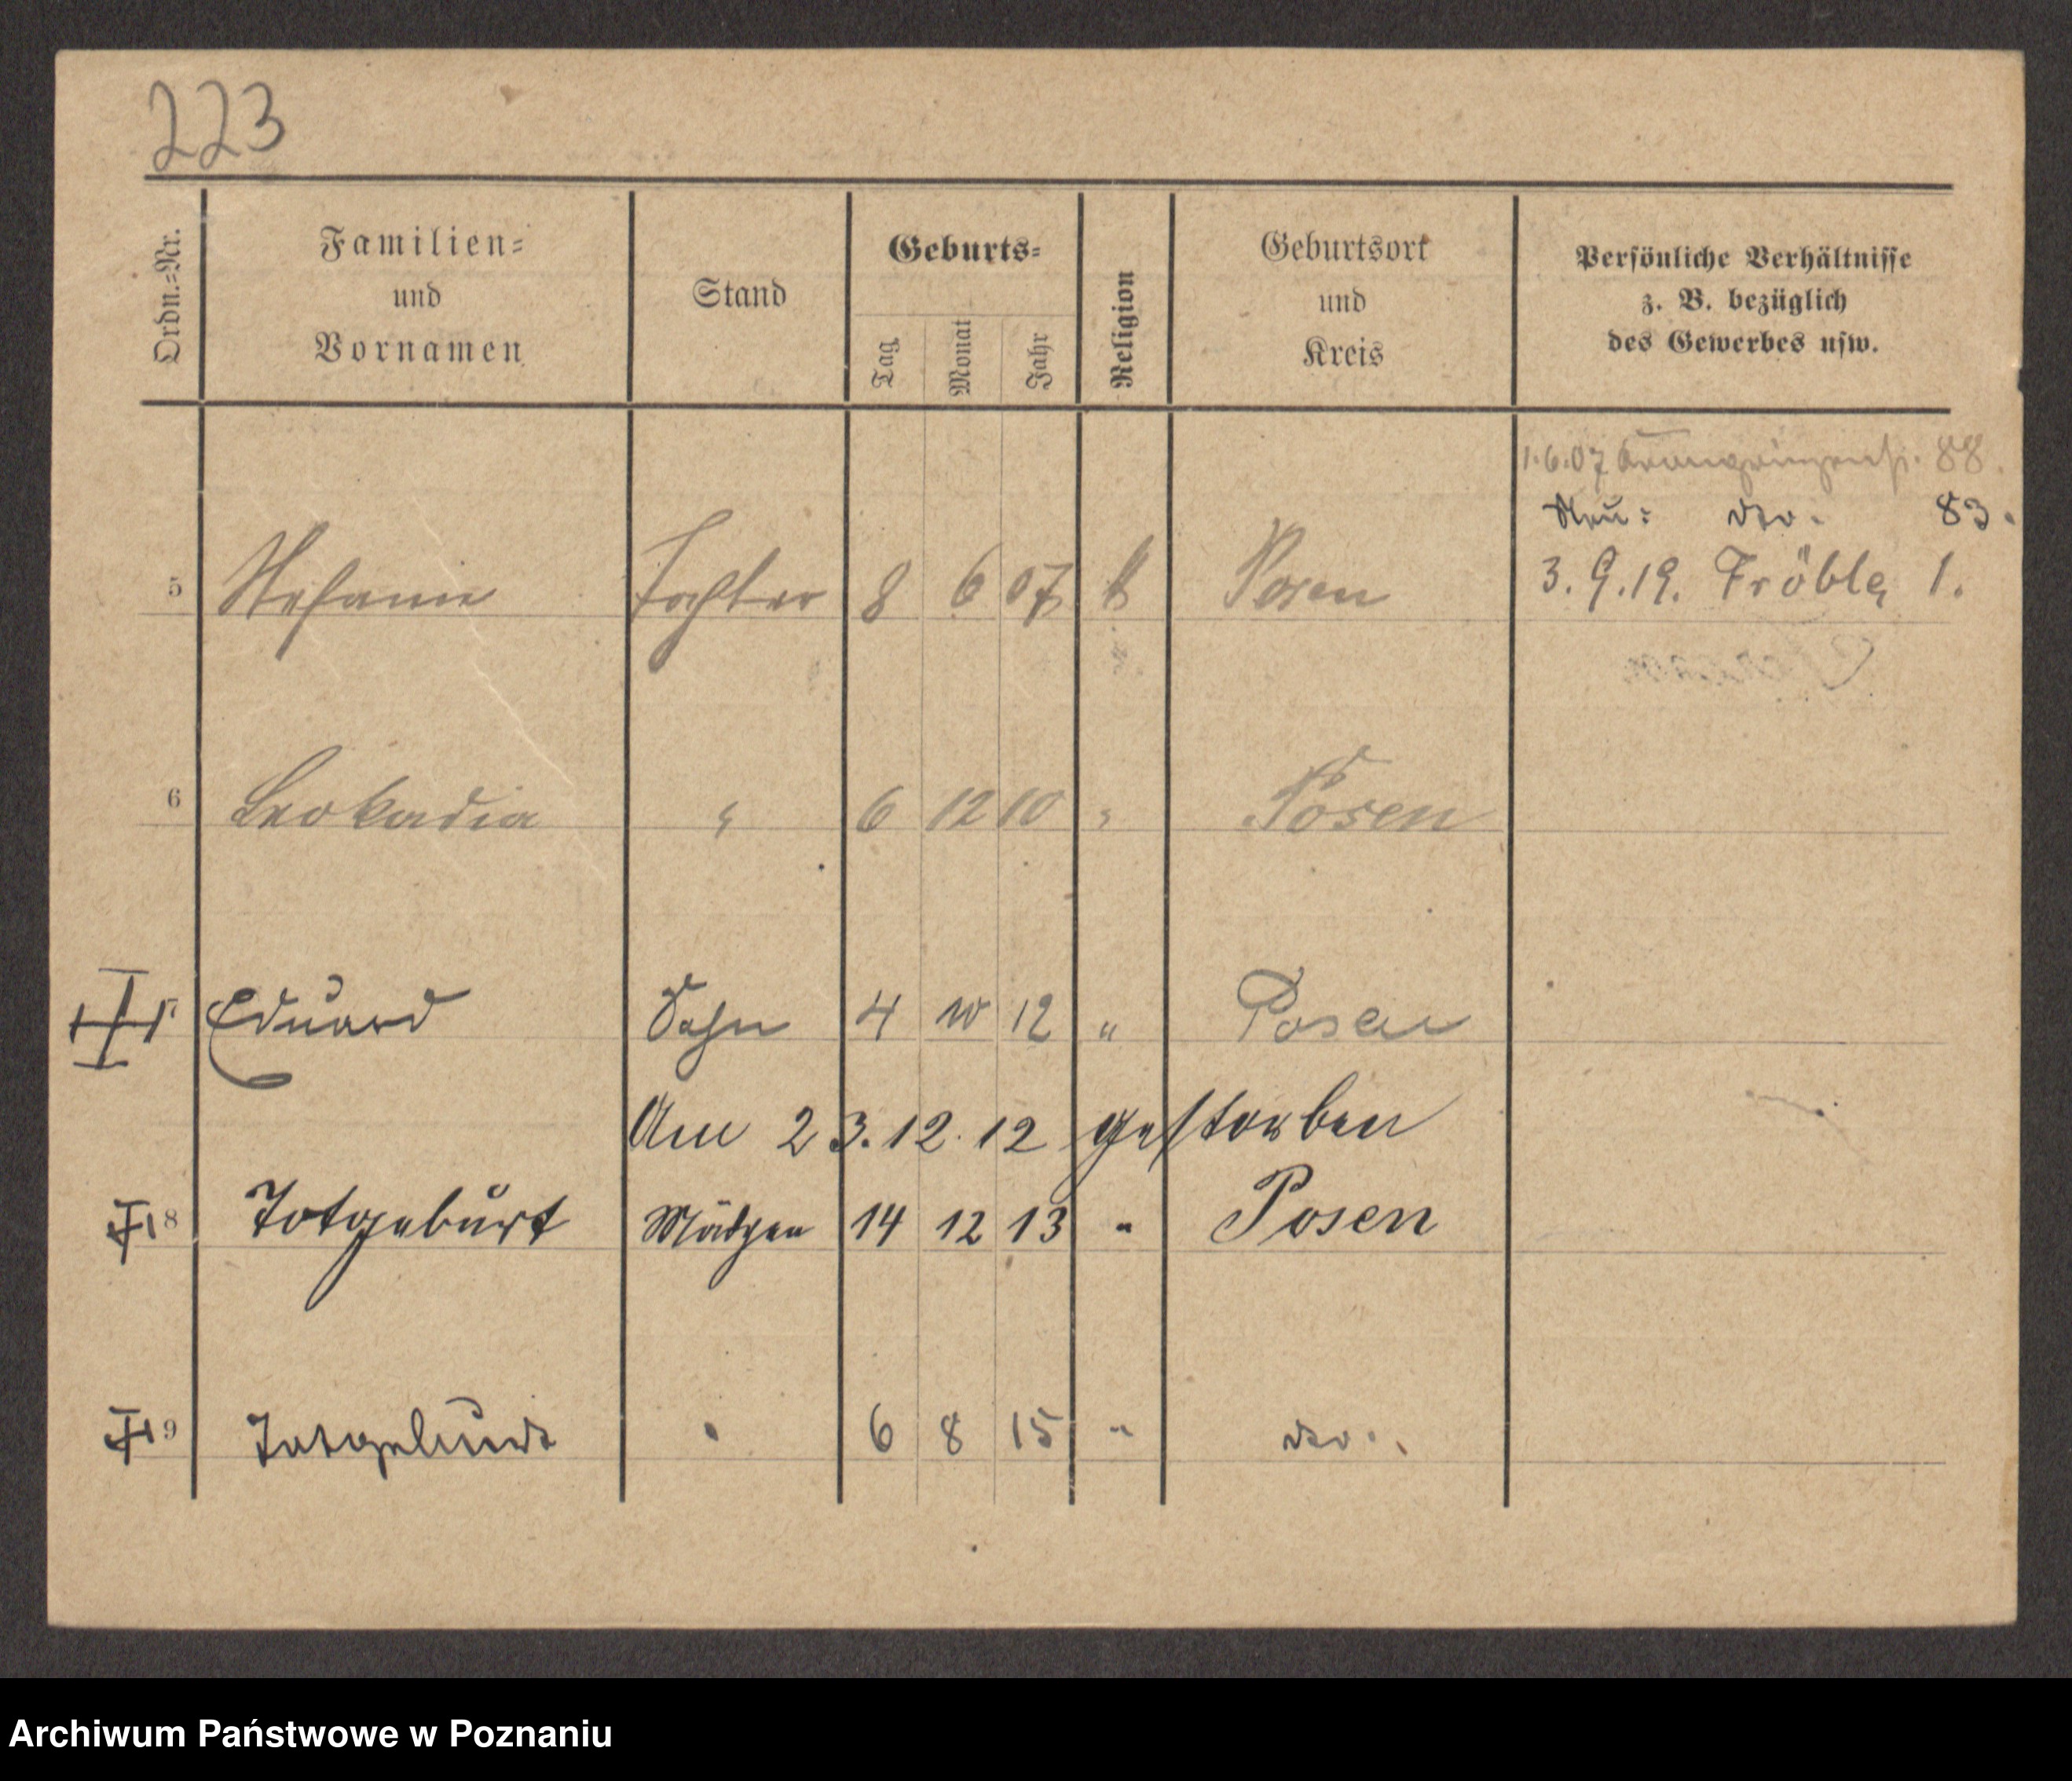 223
Ordn.=Nr.
Familien=
und
Vornamen
Stand
Geburts=
Tag
Monat
Jahr
Religion
Geburtsort
und
Kreis
Persönliche Verhältnisse
z. B. bezüglich
des Gewerbes usw.
1.6.07 88.
Neu= dto. 83.
5 Stefanie Tochter 8 6 07 k Posen 3.9.19. Fröble 1.
6 Leokadia " 6 12 10 " Posen
Eduard Sohn 4 10 12 " Posen
Am 23.12.12 gestorben
8 Totgeburt Mädchen 14 12 13 " Posen
9 Totgeburt " 6 8 15 " dto.
Archiwum Państwowe w Poznaniu